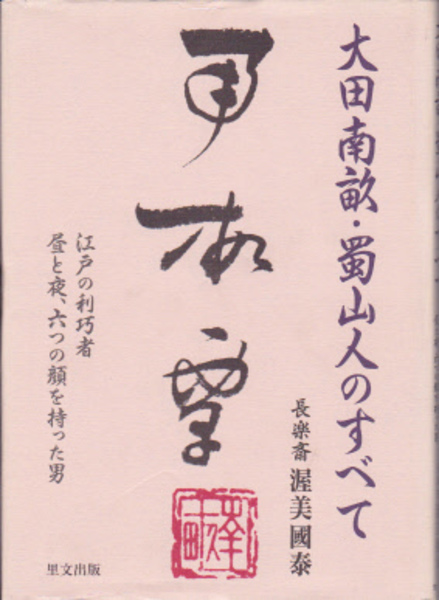 大田南畝・蜀山人のすべて
長楽斎 渥美國泰
江戸の利巧者
昼と夜、六つの顔を持った男
里文出版